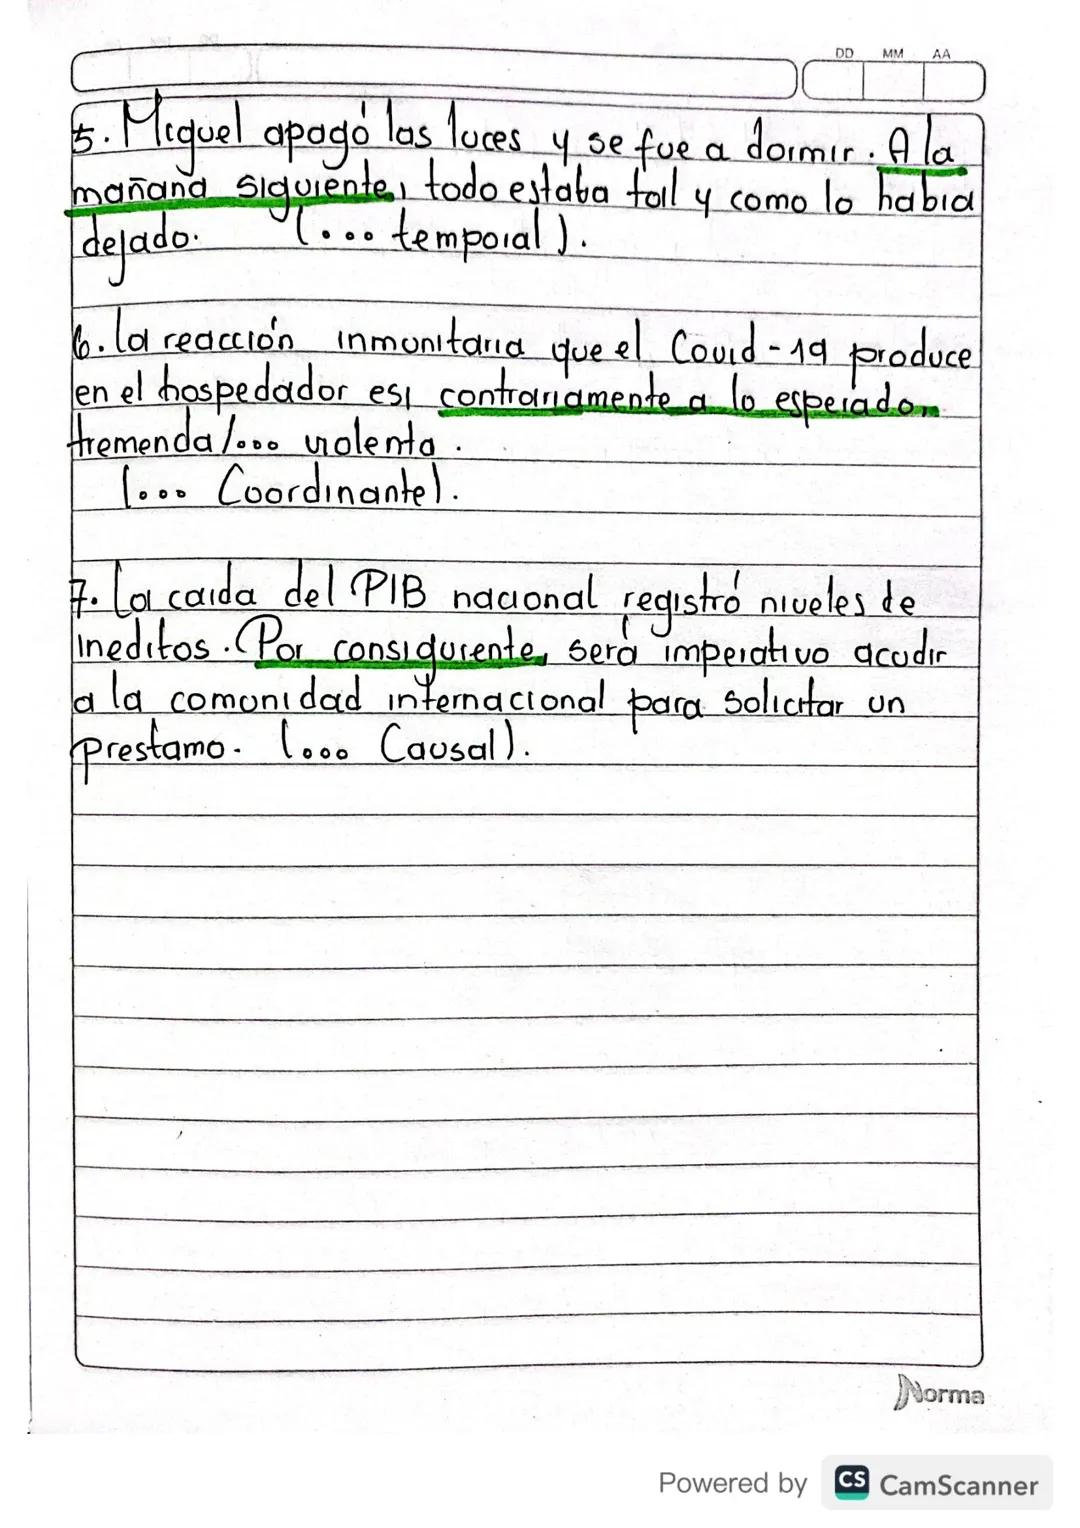 DD MM AA
5. Miguel apagó las luces y se fue a dormir. A la
mañana siguiente, todo estaba tal y como lo habia
dejado. (... temporal).
6. La reacción inmunitaria que el Covid-19 produce
en el hospedador es, contrariamente a lo esperado,
tremenda/... violenta.
(... Coordinante).
7. La caida del PIB nacional registró niveles de
ineditos. Por consiguiente, será imperativo acudir
a la comunidad internacional para solicitar un
prestamo. (... Causal).
Norma
Powered by CS CamScanner